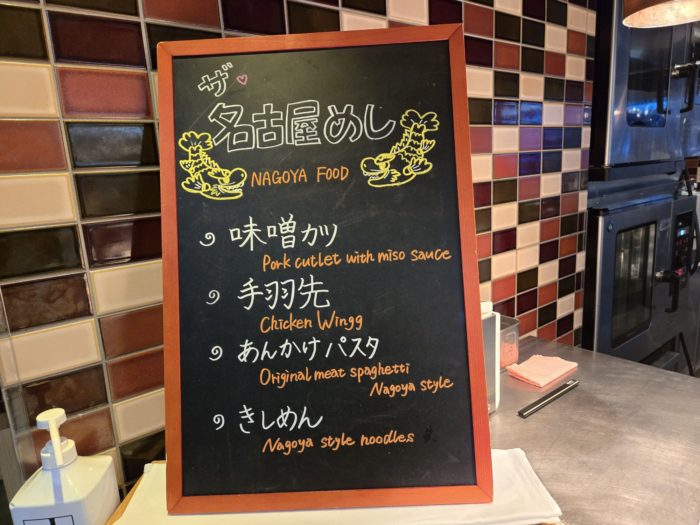 ザ
名古屋めし
NAGOYA FOOD
味噌カツ
Pork cutlet with miso sauce
手羽先
Chicken Wingg
あんかけパスタ
Original meat spaghetti
Nagoya style
きしめん
Nagoya style noodles